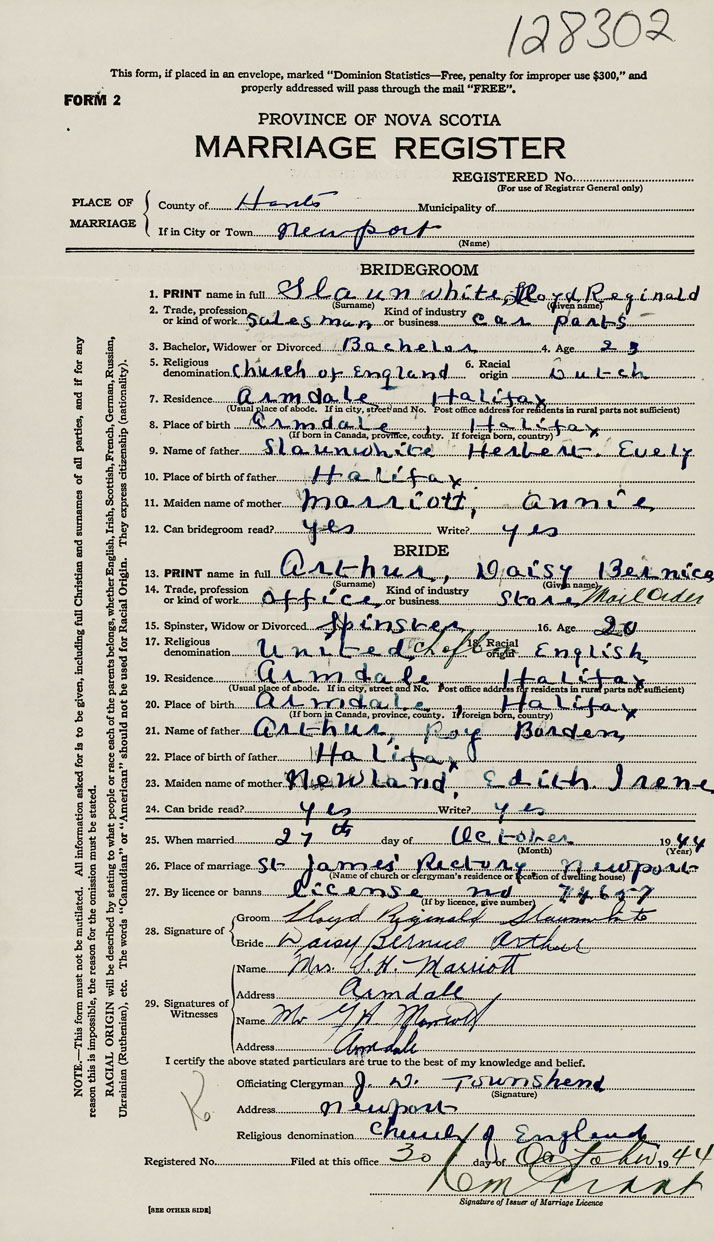 128302
This form, if placed in an envelope, marked "Dominion Statistics—Free, penalty for improper use $300," and
properly addressed will pass through the mail "FREE".
FORM 2
PROVINCE OF NOVA SCOTIA
MARRIAGE REGISTER
REGISTERED No.
(For use of Registrar General only)
PLACE OF MARRIAGE
County of Hants Municipality of
If in City or Town Newport
(Name)
BRIDEGROOM
1. PRINT name in full Slaunwhite, Lloyd Reginald
(Surname) (Given name)
2. Trade, profession or kind of work Salesman Kind of industry or business car parts
3. Bachelor, Widower or Divorced Bachelor 4. Age 23
5. Religious denomination Church of England 6. Racial origin Dutch
7. Residence Armdale Halifax
(Usual place of abode. If in city, street and No. Post office address for residents in rural parts not sufficient)
8. Place of birth Armdale, Halifax
(If born in Canada, province, county. If foreign born, country)
9. Name of father Slaunwhite Herbert Evely
10. Place of birth of father Halifax
11. Maiden name of mother Marriott, Annie
12. Can bridegroom read? yes Write? yes
BRIDE
13. PRINT name in full Arthur, Daisy Bernice
(Surname) (Given name)
14. Trade, profession or kind of work office Kind of industry or business Store Mail Order
15. Spinster, Widow or Divorced Spinster 16. Age 20
17. Religious denomination United Ch of 18. Racial origin English
19. Residence Armdale, Halifax
(Usual place of abode. If in city, street and No. Post office address for residents in rural parts not sufficient)
20. Place of birth Armdale, Halifax
(If born in Canada, province, county. If foreign born, country)
21. Name of father Arthur, Roy Borden
22. Place of birth of father Halifax
23. Maiden name of mother Newland, Edith Irene
24. Can bride read? yes Write? yes
25. When married 27th day of October 1944
(Month) (Year)
26. Place of marriage St James' Rectory Newport
(Name of church or clergyman's residence or location of dwelling house)
27. By licence or banns license no 74657
(If by licence, give number)
28. Signature of
Groom Lloyd Reginald Slaunwhite
Bride Daisy Bernice Arthur
29. Signatures of Witnesses
Name Mrs. G. H. Marriott
Address Armdale
Name Mr G H Marriott
Address Armdale
I certify the above stated particulars are true to the best of my knowledge and belief.
Officiating Clergyman J. W. Townshend
(Signature)
Address Newport
Religious denomination Church of England
Registered No. Filed at this office 30 day of October 1944
Grant
Signature of Issuer of Marriage Licence
[SEE OTHER SIDE]
NOTE.—This form must not be mutilated. All information asked for is to be given, including full Christian and surnames of all parties, and if for any
reason this is impossible, the reason for the omission must be stated.
RACIAL ORIGIN will be described by stating to what people or race each of the parents belongs, whether English, Irish, Scottish, French, German, Russian,
Ukrainian (Ruthenian), etc. The words "Canadian" or "American" should not be used for Racial Origin. They express citizenship (nationality).